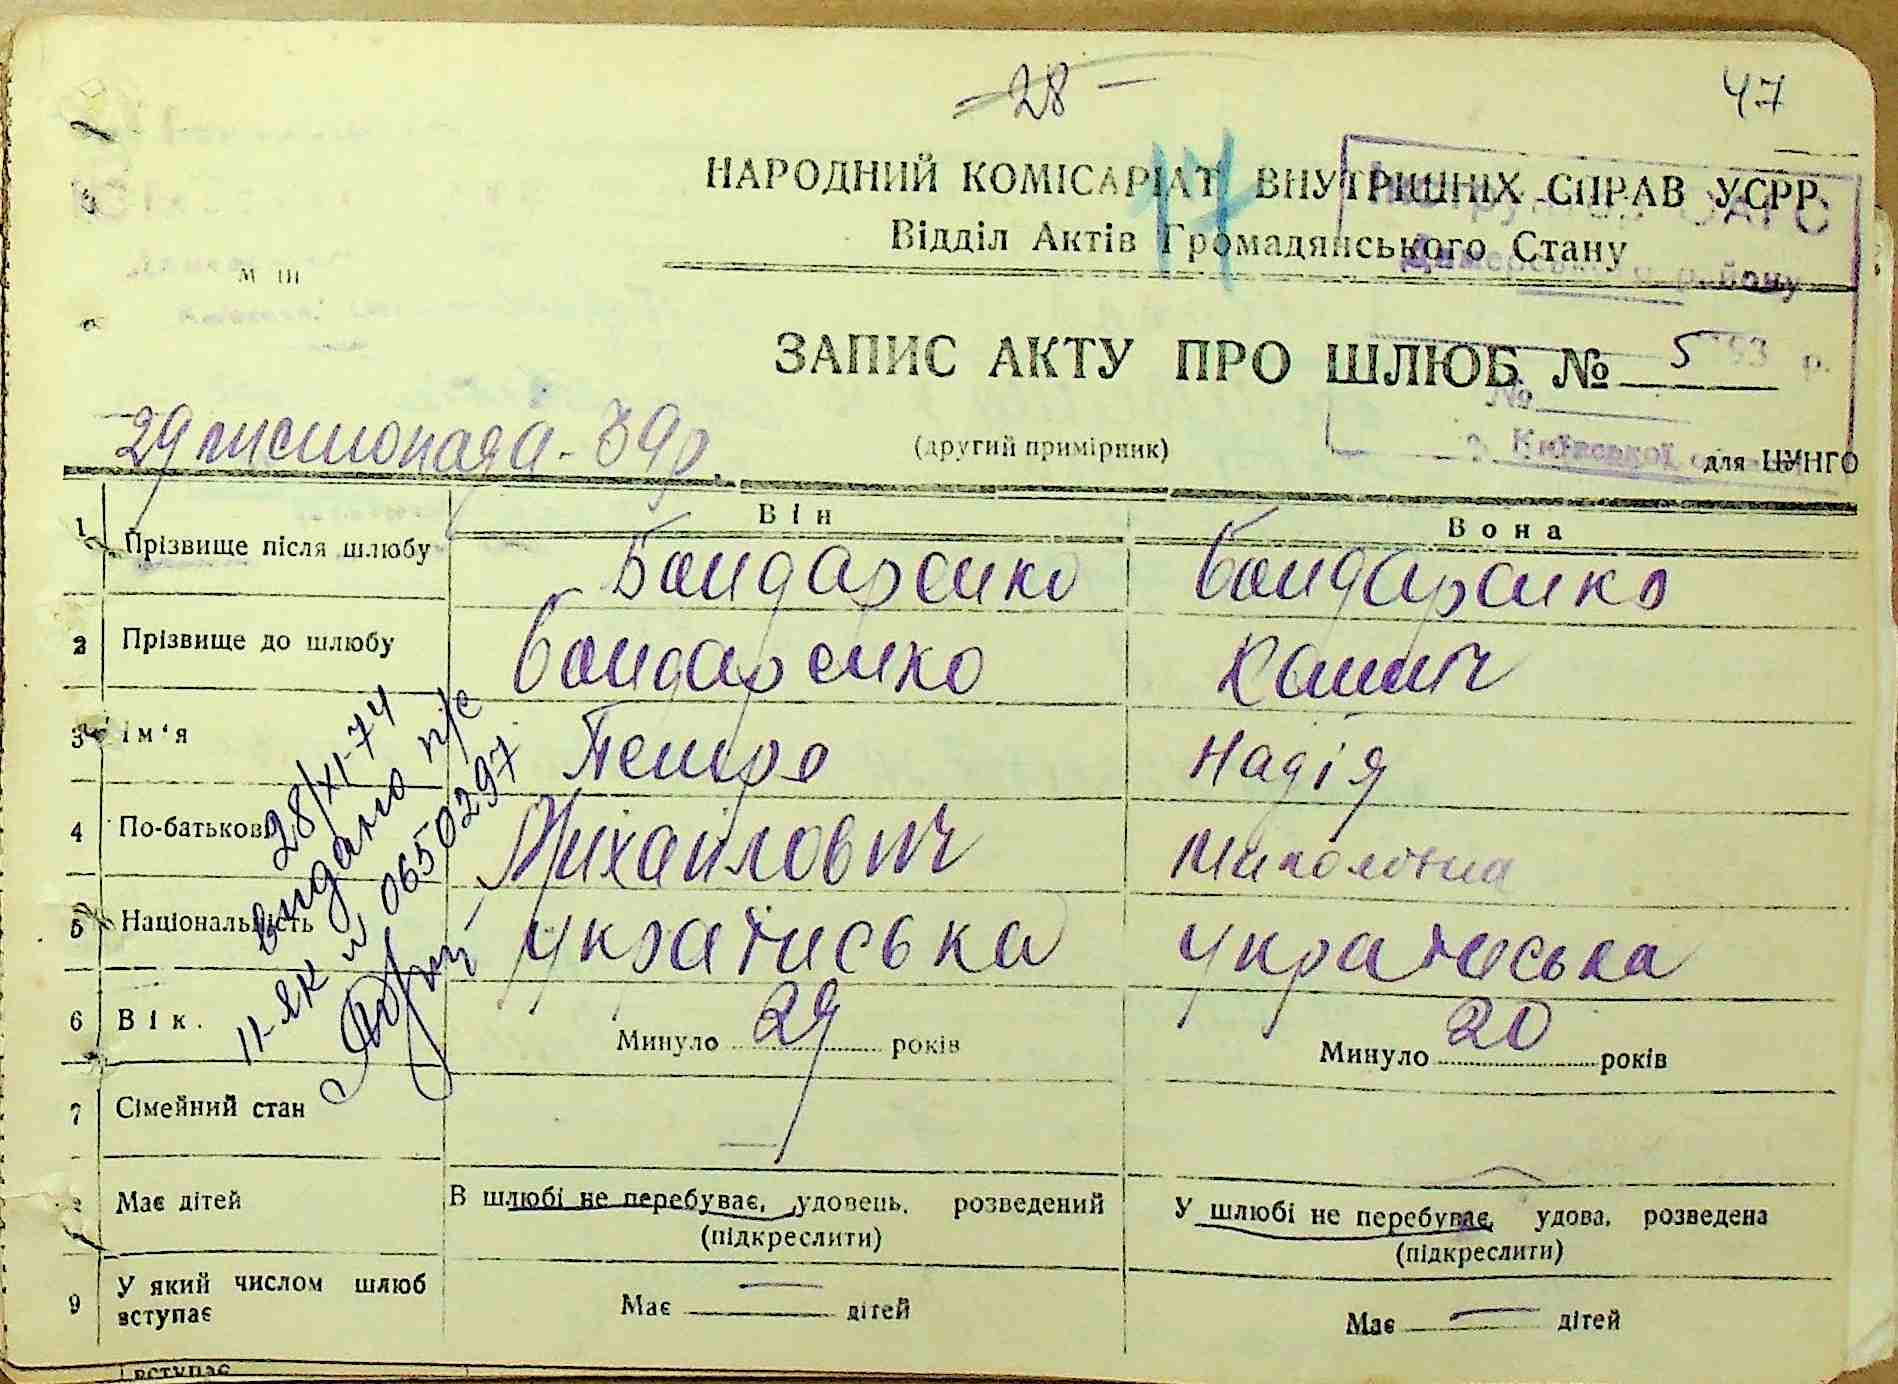 - 28 -
47
НАРОДНИЙ КОМІСАРІАТ ВНУТРІШНІХ СПРАВ УСРР
Відділ Актів Громадянського Стану
17
ОАГС
району
М III
ЗАПИС АКТУ ПРО ШЛЮБ № 5
193 р.
№
29 листопада - 39 р.
(другий примірник)
Київської
для ЦУНГО
Він
Вона
1 Прізвище після шлюбу Бондаренко Бондаренко
2 Прізвище до шлюбу Бондаренко
3 Ім'я Петро Надія
4 По-батькові Михайлович Миколівна
5 Національність українська українська
6 Вік. Минуло 29 років Минуло 20 років
7 Сімейний стан
Має дітей В шлюбі не перебуває, удовець, розведений У шлюбі не перебуває, удова, розведена
(підкреслити) (підкреслити)
9 У який числом шлюб вступає Має — дітей Має — дітей
28/XI-74
видано п/с
II-ЯК № 0650297
вступає